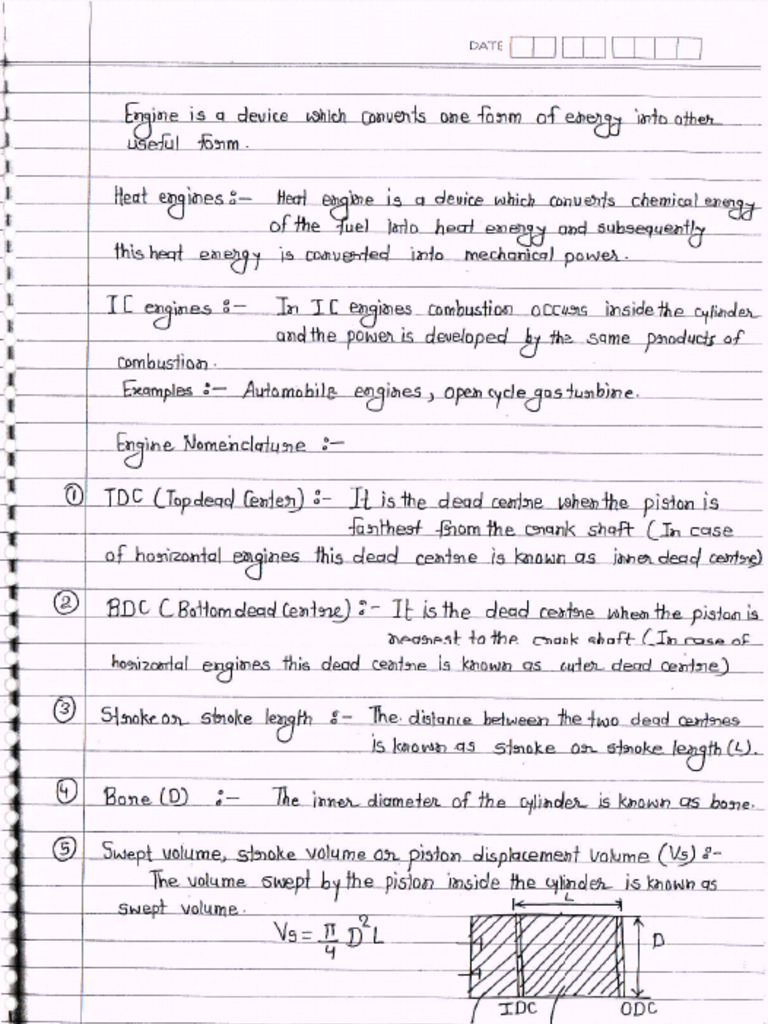 DATE
Engine is a device which converts one form of energy into other
useful form.
Heat engines :- Heat engine is a device which converts chemical energy
of the fuel into heat energy and subsequently
this heat energy is converted into mechanical power.
IC engines :- In IC engines combustion occurs inside the cylinder
and the power is developed by the same products of
combustion.
Examples :- Automobile engines, open cycle gas turbine.
Engine Nomenclature :-
① TDC (Top dead Center) :- It is the dead centre when the piston is
farthest from the crank shaft (In case
of horizontal engines this dead centre is known as inner dead centre)
② BDC (Bottom dead Centre) :- It is the dead centre when the piston is
nearest to the crank shaft (In case of
horizontal engines this dead centre is known as outer dead centre)
③ Stroke or stroke length :- The distance between the two dead centres
is known as stroke or stroke length (L).
④ Bore (D) :- The inner diameter of the cylinder is known as bore.
⑤ Swept volume, stroke volume or piston displacement volume (Vs) :-
The volume swept by the piston inside the cylinder is known as
swept volume.
L
Vs = π/4 D²L
D
IDC ODC